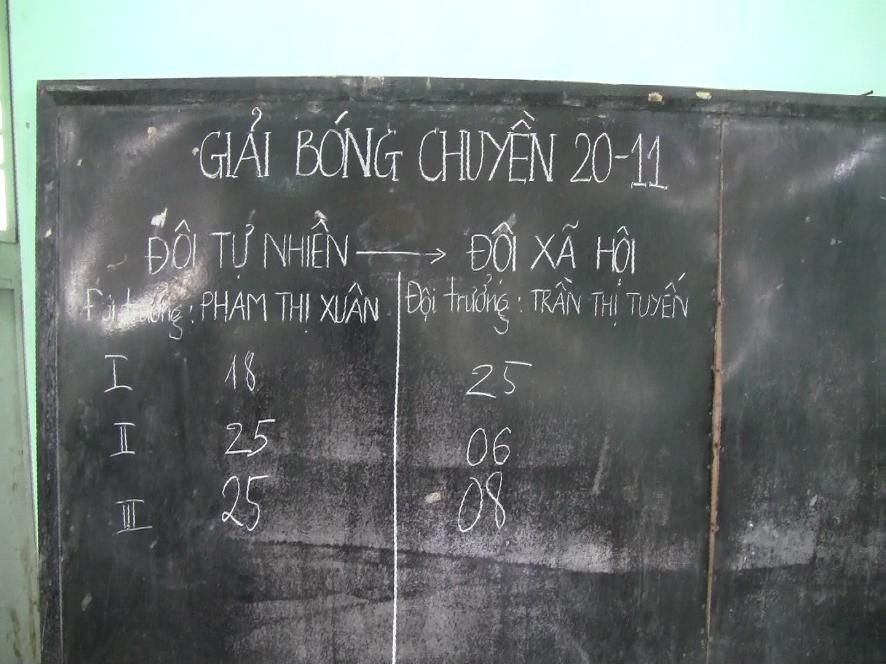 GIẢI BÓNG CHUYỀN 20-11
ĐỘI TỰ NHIÊN → ĐỘI XÃ HỘI
Đội trưởng: PHẠM THỊ XUÂN Đội trưởng: TRẦN THỊ TUYẾN
I 18 25
II 25 06
III 25 08